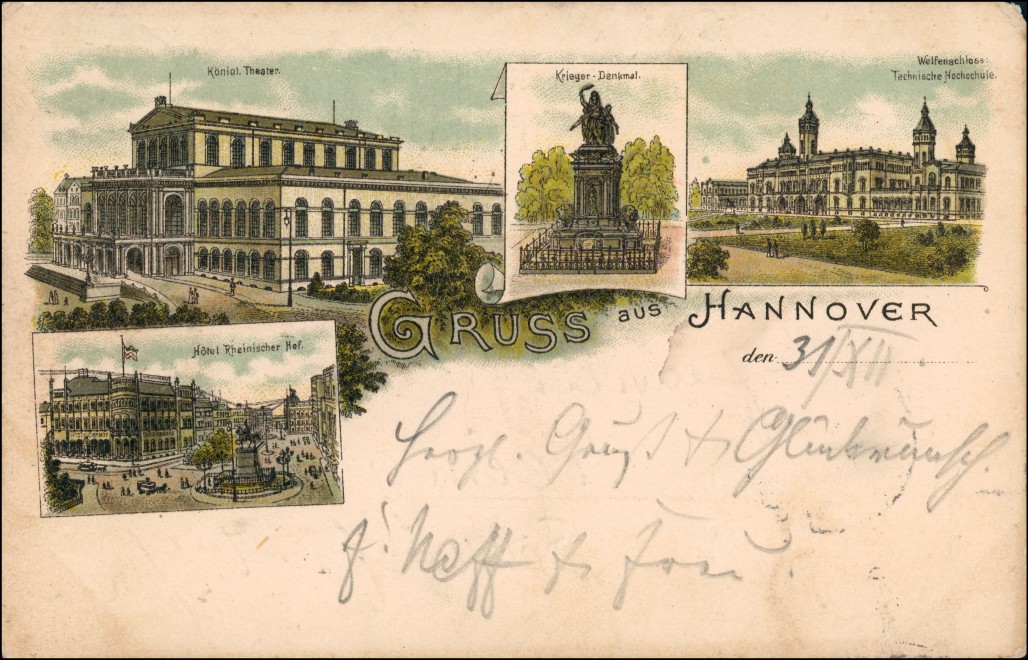 Königl. Theater.
Krieger-Denkmal.
Welfenschloss.
Technische Hochschule.
GRUSS AUS HANNOVER
Hôtel Rheinischer Hof.
den 31/XII.
Herzl. Gruß & Glückwunsch.
& Frau